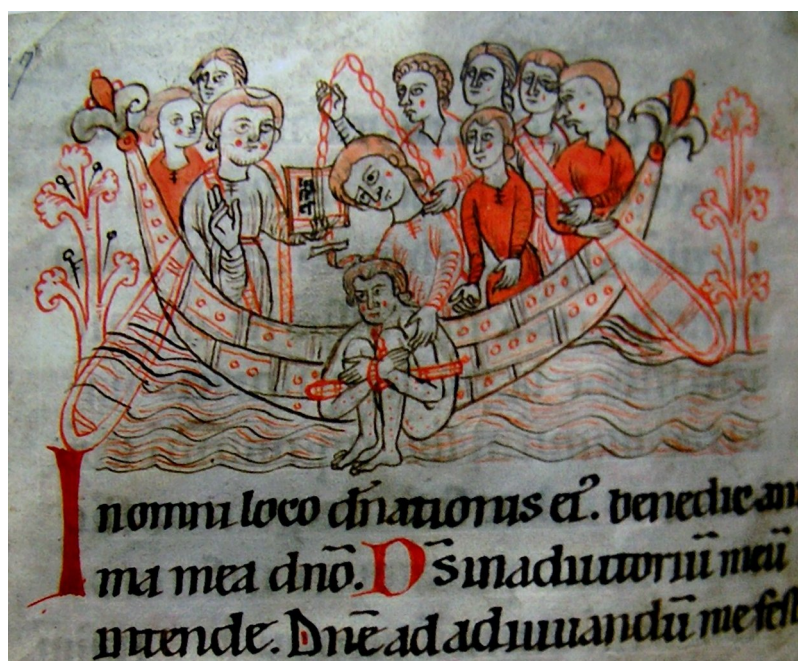 In omni loco dn̄ationis ei᷒. benedic ani
ma mea dnō. Ds̄ inadiutoriū meū
intende. Dnē ad adiuuandū me fest